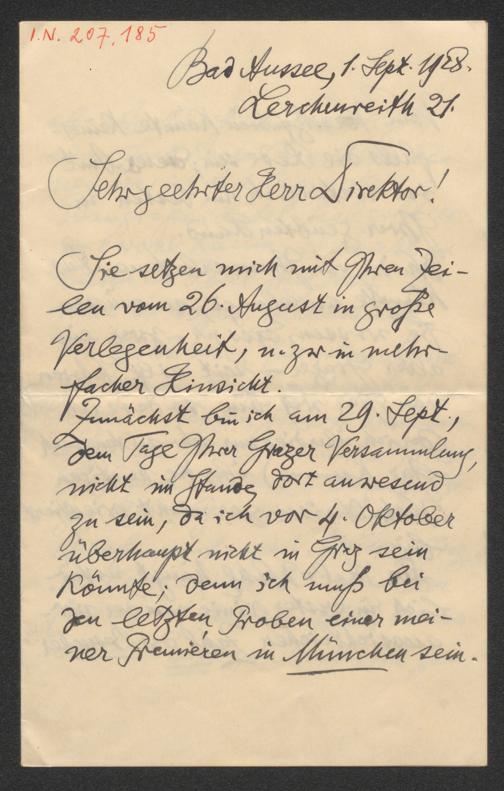 I.N. 207.185
Bad Aussee, 1. Sept. 1928.
Lerchenreith 21.
Sehr geehrter Herr Direktor!
Sie setzen mich mit Ihren Zei-
len vom 26. August in große
Verlegenheit, u. zw in mehr-
facher Hinsicht.
Zunächst bin ich am 29. Sept.,
dem Tage Ihrer Grazer Versammlung,
nicht im Stande, dort anwesend
zu sein, da ich vor 4. Oktober
überhaupt nicht in Graz sein
könnte; denn ich muß bei
den letzten Proben einer mei-
ner Premièren in München sein.